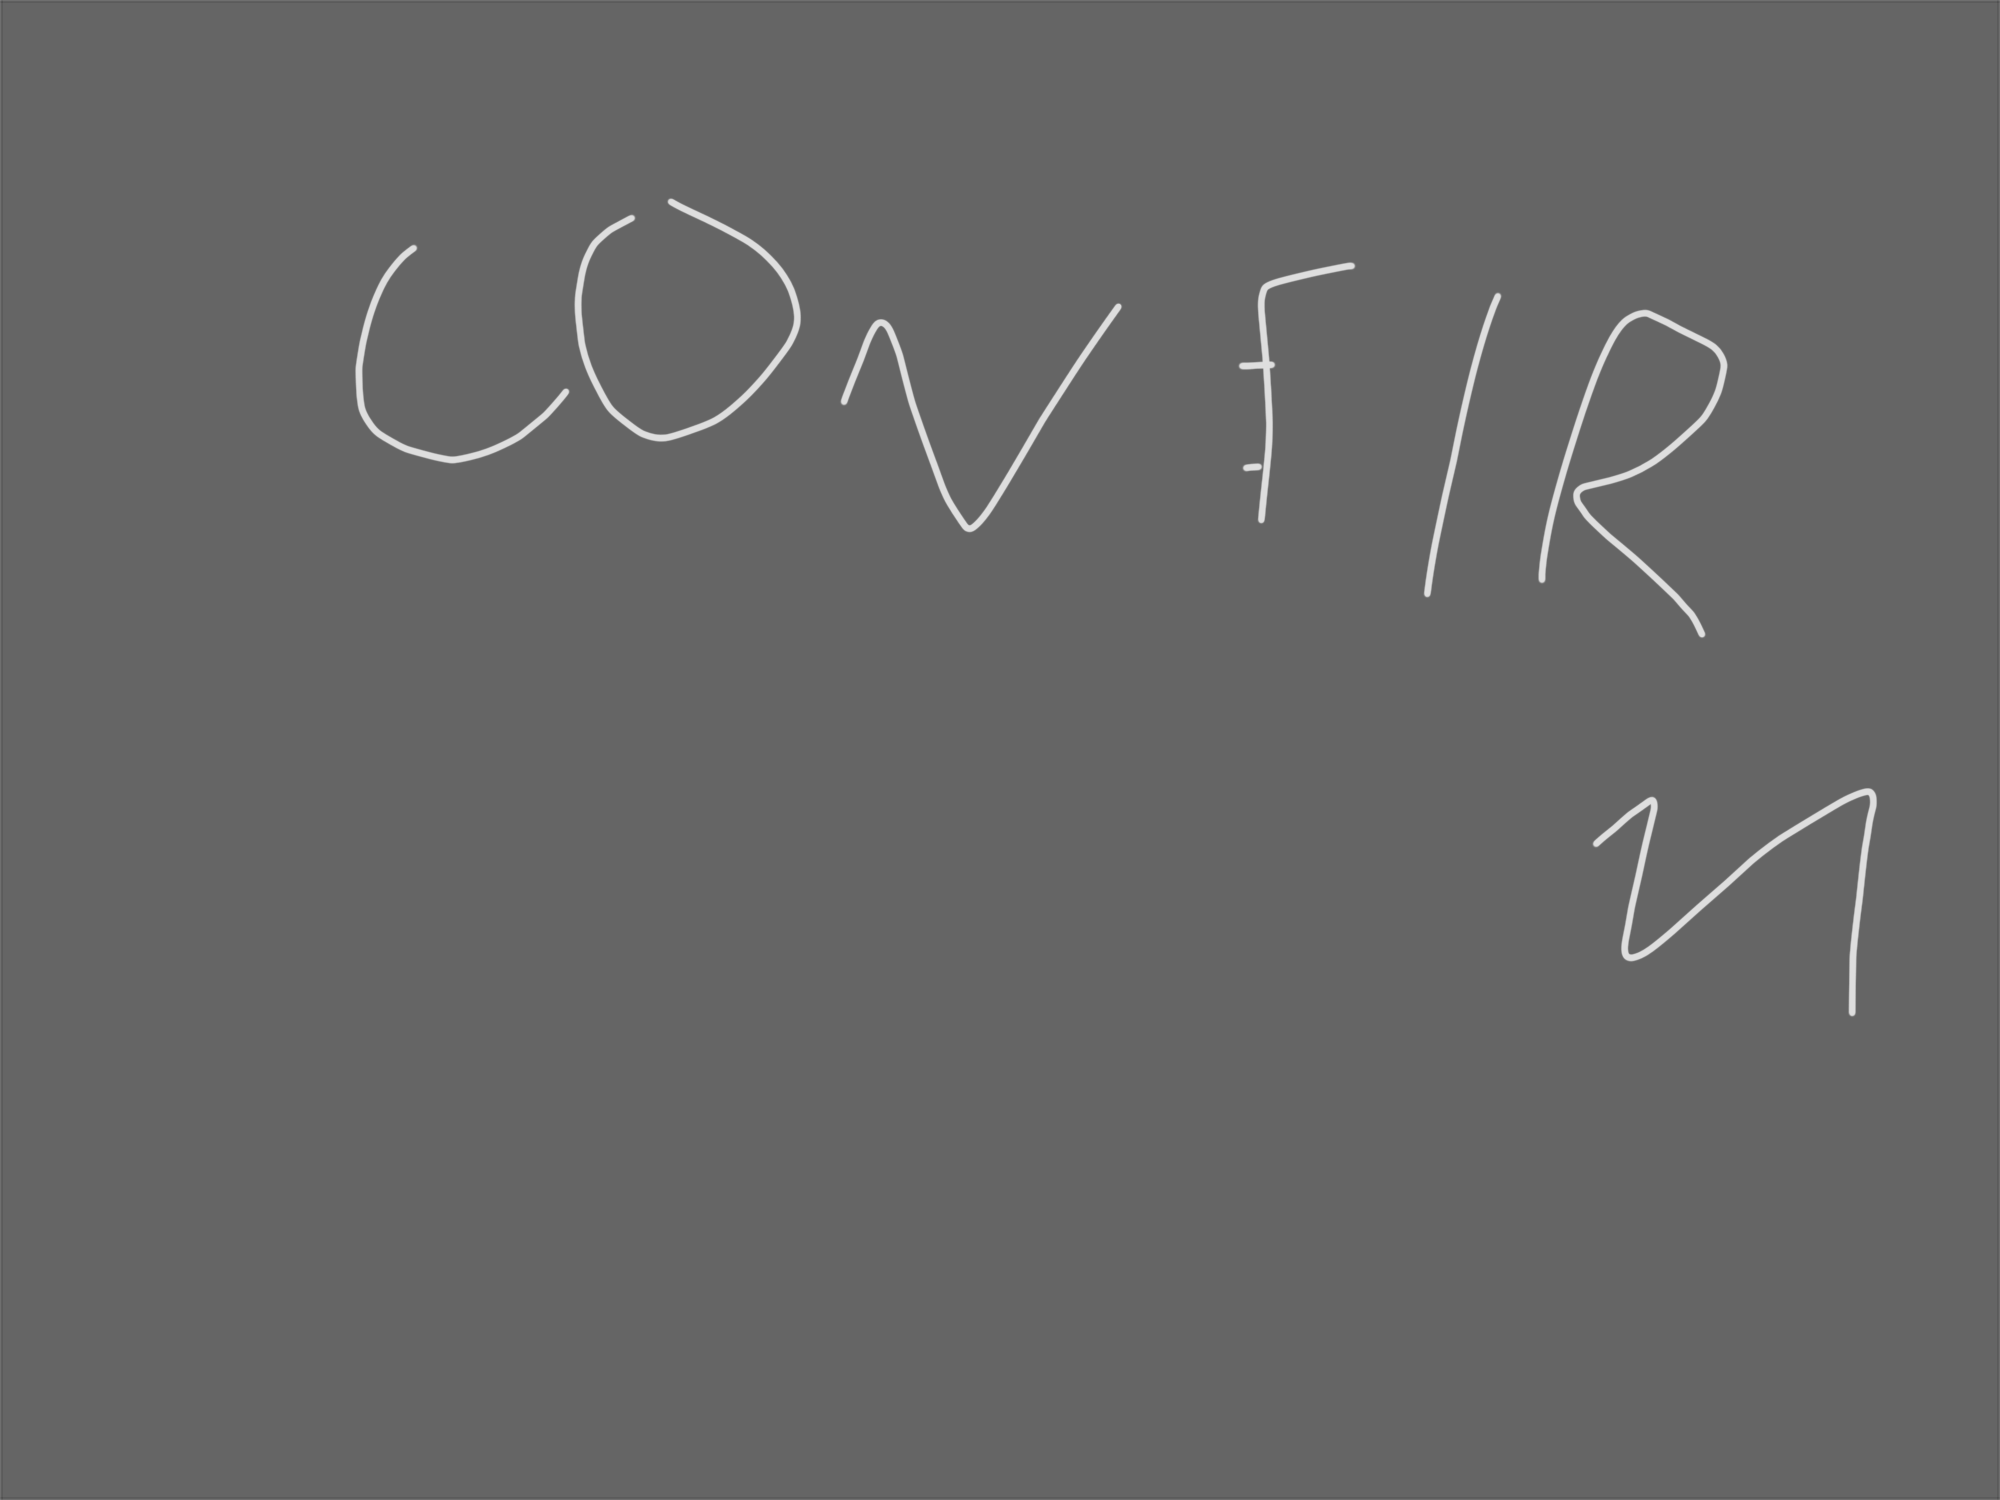 CONFIR
M